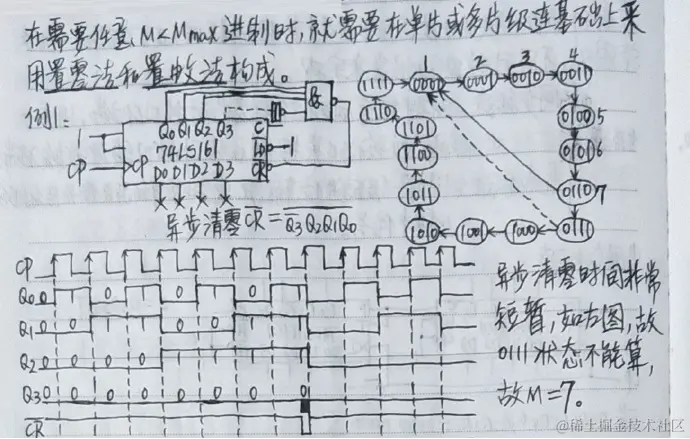 在需要任意M<Mmax进制时,就需要在单片或多片级连基础上采
用置零法和置数法构成。
例1:
&
Q0 Q1 Q2 Q3 C
74LS161
CP
CP
LD
1
CR
D0 D1 D2 D3
× × × ×
异步清零CR=Q3Q2Q1Q0
1 2 3 4
1111 0000 0001 0010 0011
1110 0100 5
1101
1100 0101 6
1011 0110 7
1010 1001 1000 0111
CP
Q0 0 1 0 1 0 1 0 1
Q1 0 0 1 1 0 0 1 1
Q2 0 0 0 0 1 1 1 1
Q3 0 0 0 0 0 0 0 0
CR
异步清零时间非常
短暂,如左图,故
0111状态不能算,
故M=7。
@稀土掘金技术社区